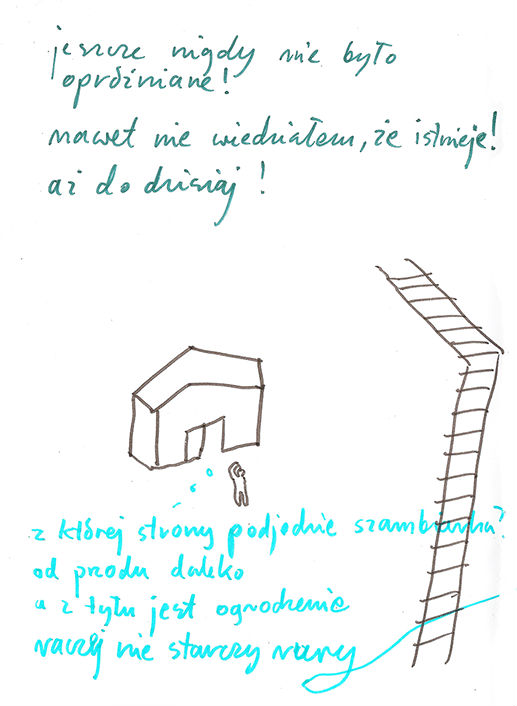 jeszcze nigdy nie było
opróżniane!
nawet nie wiedziałem, że istnieje!
aż do dzisiaj!
z której strony podjedzie szambiarka?
od przodu daleko
a z tyłu jest ogrodzenie
raczej nie starczy rury